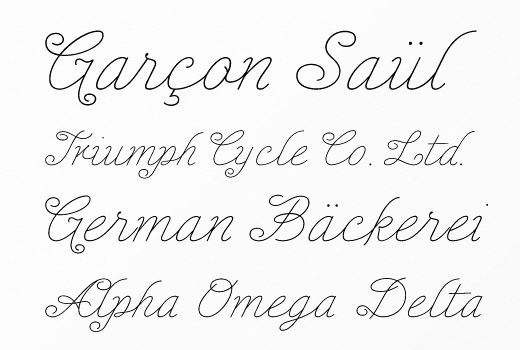 Garçon Saül
Triumph Cycle Co. Ltd.
German Bäckerei
Alpha Omega Delta